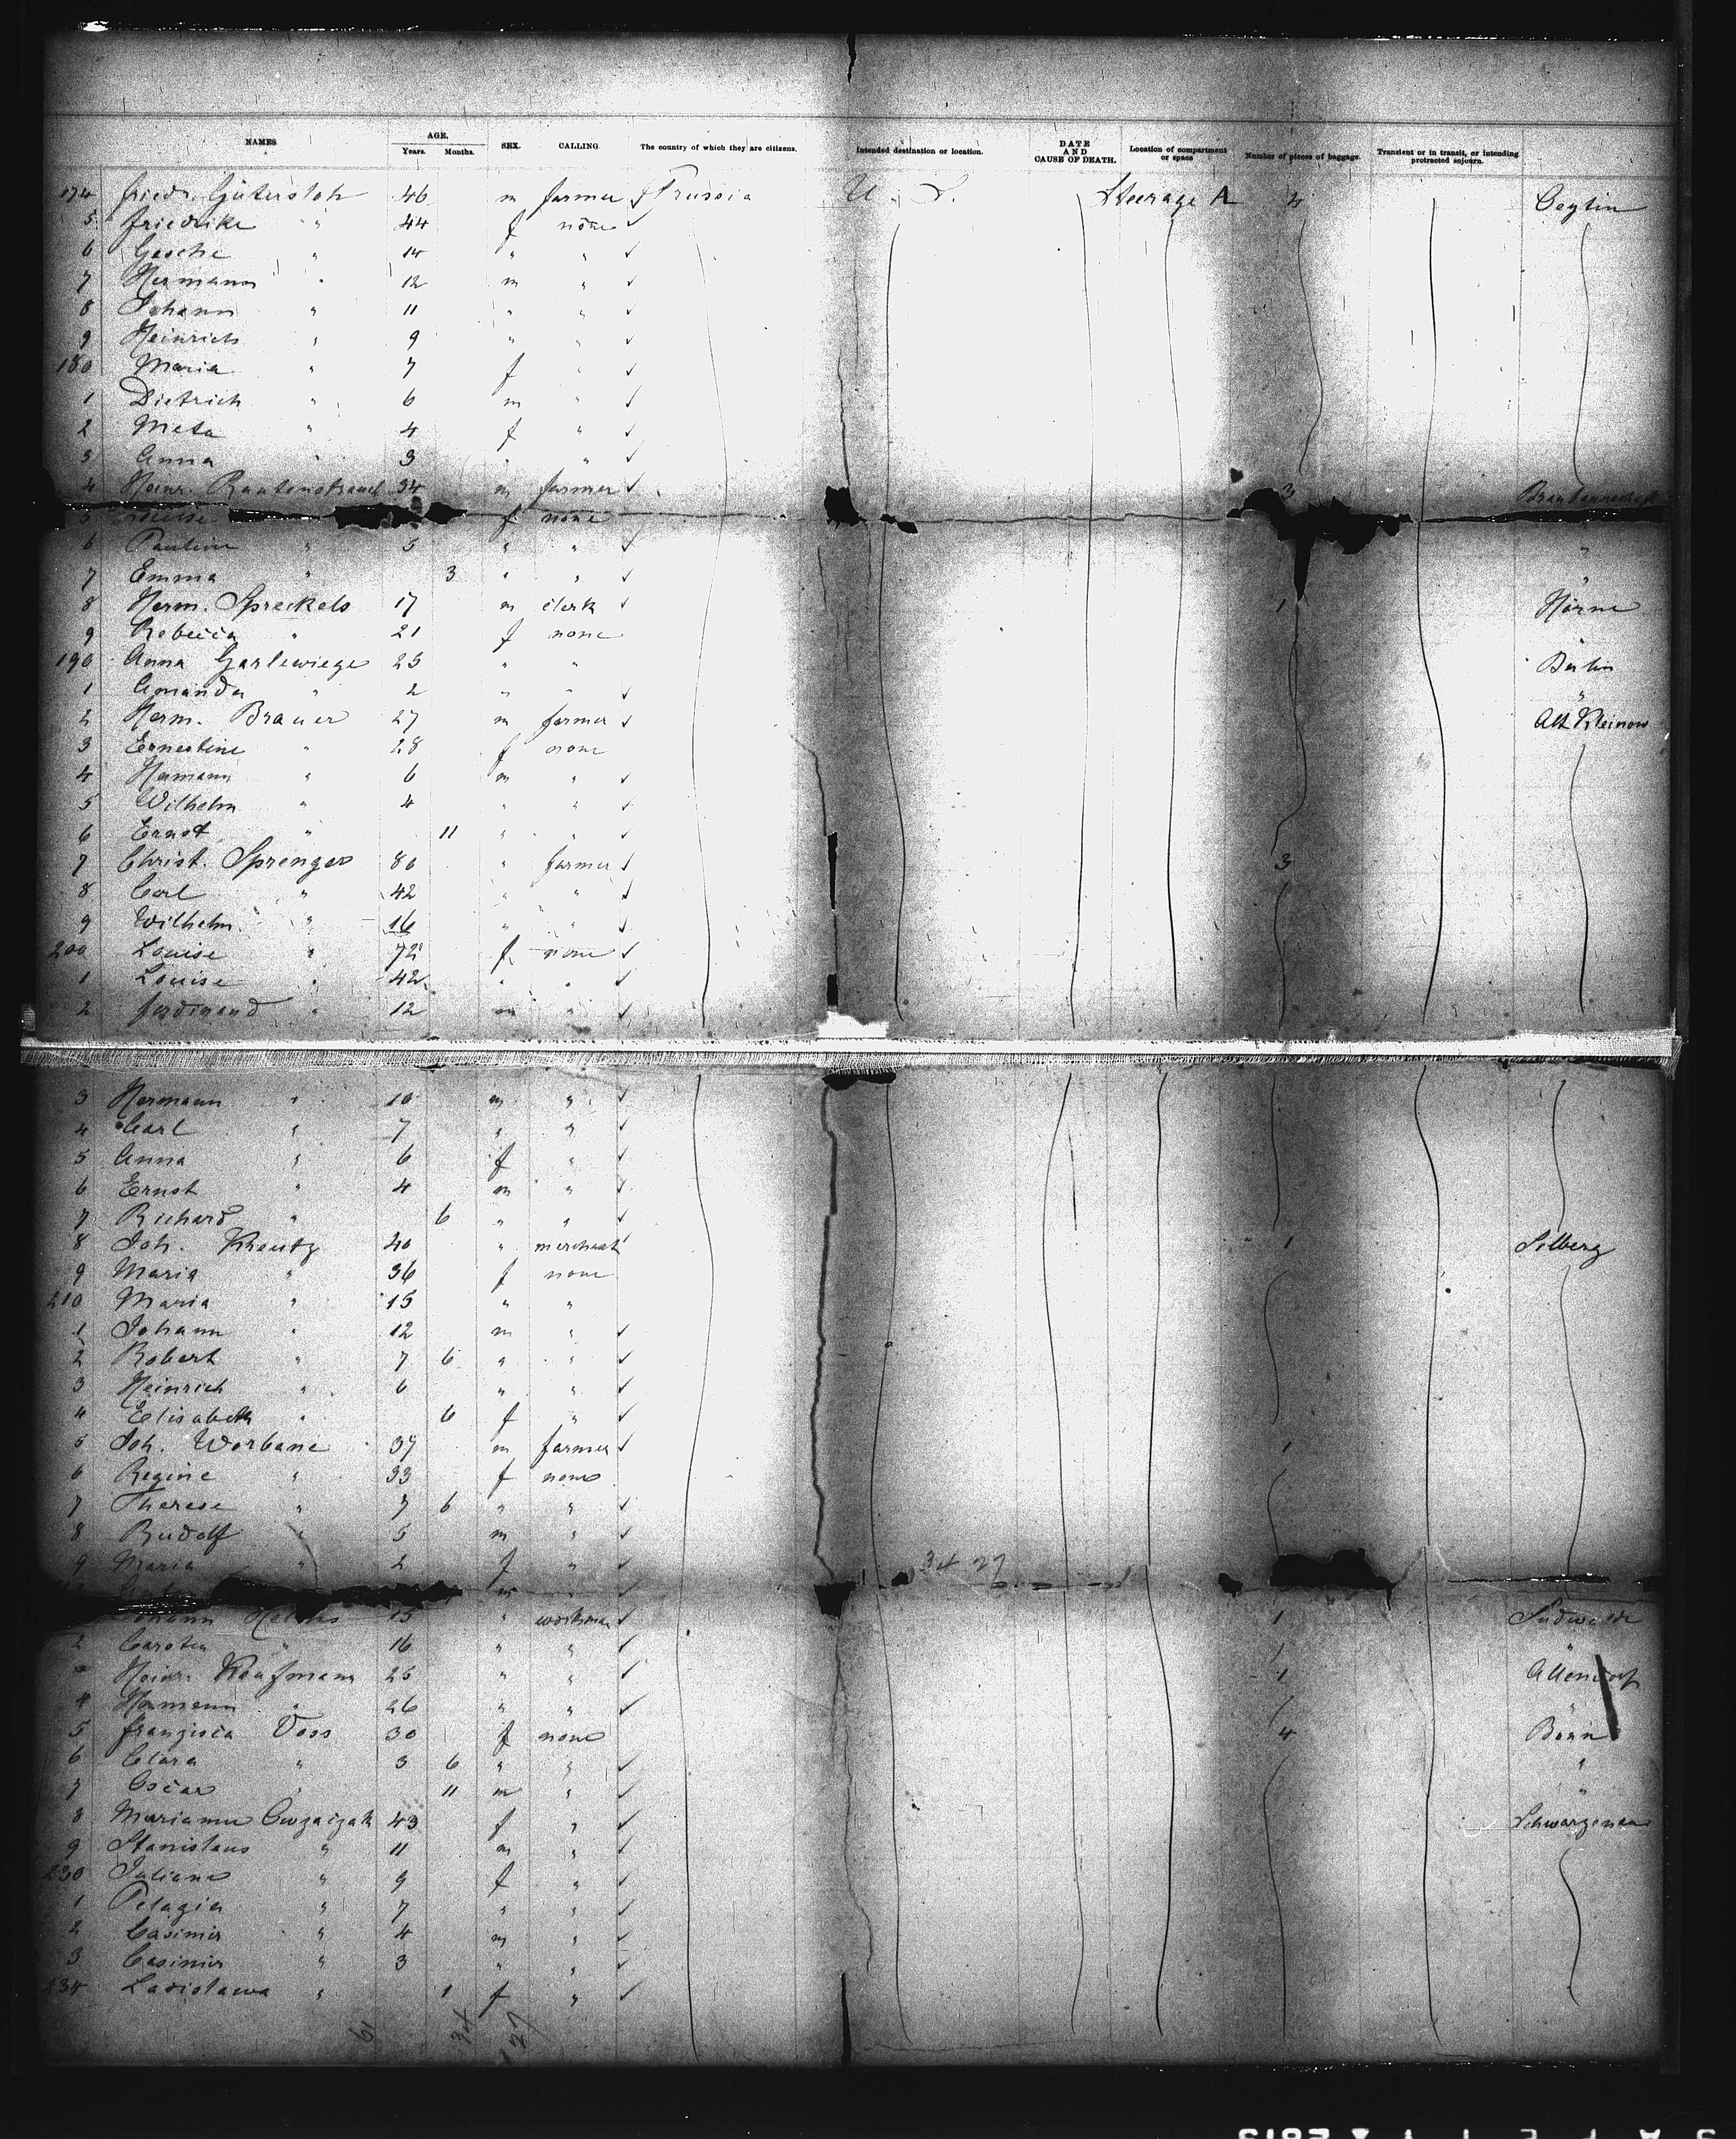 NAMES AGE. Years. Months. SEX. CALLING. The country of which they are citizens. Intended destination or location. DATE AND CAUSE OF DEATH. Location of compartment or space Number of pieces of baggage. Transient or in transit, or intending protracted sojourn.
174 Friedr. Gütersloh 46 m farmer Prussia U. S. Steerage A
5 Friedrike " 44 f none
6 Gesche " 14 " "
7 Hermann " 12 m "
8 Johann " 11 " "
9 Heinrich " 9 " "
180 Maria " 7 f "
1 Dietrich " 6 m "
2 Meta " 4 f "
3 Anna " 3 " "
4 Heinr. Rautenstrauch 34 m farmer 3
5 f none
6 Pauline " 5 " "
7 Emma " 3 " " "
8 Herm. Spreckels 17 m clerk 1 Hörne
9 Rebecca " 21 f none "
190 Anna Garlewiege 25 " " Berlin
1 Amanda " 2 " " "
2 Herm. Brauer 27 m farmer Alt Kleinow
3 Ernestine " 28 f none
4 Hermann " 6 m "
5 Wilhelm " 4 " "
6 Ernst " 11 " "
7 Christ. Sprenger 80 " farmer 3
8 Carl " 42 " "
9 Wilhelm " 16 " "
200 Louise " 72 f none
1 Louise " 42 " "
2 Ferdinand " 12 m "
3 Hermann " 10 m "
4 Carl " 7 " "
5 Anna " 6 f "
6 Ernst " 4 m "
7 Richard " 6 " "
8 Joh. Kreutz 40 " merchant 1 Silberg
9 Maria " 36 f none
210 Maria " 15 " "
1 Johann " 12 m "
2 Robert " 7 6 " "
3 Heinrich " 6 " "
4 Elisabeth " 6 f "
5 Joh. Worbane 37 m farmer 1
6 Regine " 33 f none
7 Therese " 7 6 " "
8 Rudolf " 5 m "
9 Maria " 2 f " 34 27
m "
Johann 15 " workman 1 Südwalde
2 Carsten " 16 " " "
Heinr. Kaufmann 25 " " 1 Allendorf
4 Hermann " 26 " " "
5 Franzisca Voss 30 f none 4 Bonn
6 Clara " 3 6 " " "
7 Oscar " 11 m " "
8 Marianne 43 f " Schwarzenau
9 Stanislaus " 11 m "
230 Juliana " 9 f "
1 Pelagia " 7 " "
2 Casimir " 4 m "
3 Casimir " 3 " "
234 Ladislawa " 1 f "
61 34 27